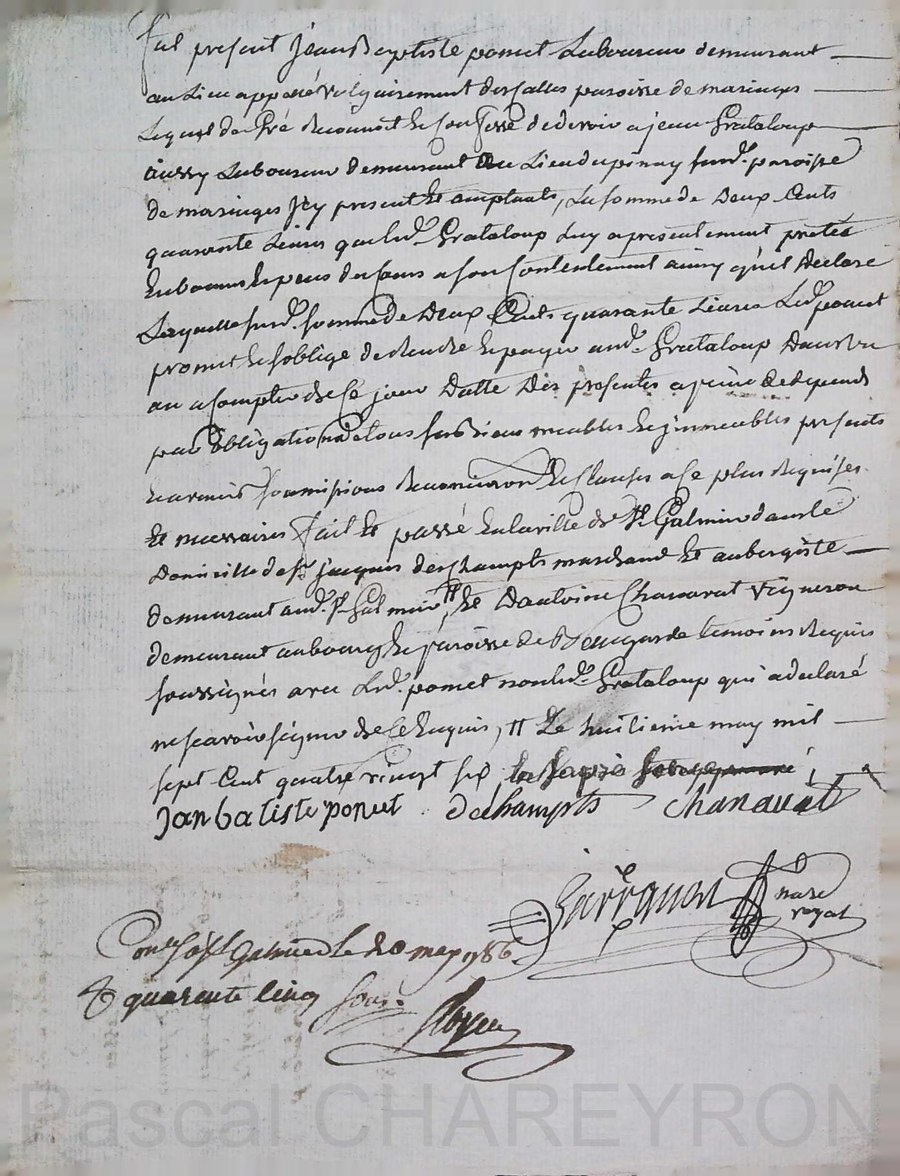 fut présent Jean Baptiste poncet Laboureur demeurant
au Lieu appellé vulgairement des salles paroisse de maringes
Lequel de Gré Reconnoit et Confesse de devoir a jean Grataloup
aussy Laboureur demeurant au Lieu du pinay surd. paroisse
de maringes Icy present et acceptant, La somme de Deux Cents
quarante Livres que led. Grataloup Luy a presentement pretée
En bonnes Especes du Cours a son Contentement ainsy qu'il Declare
Laquelle surd. somme de Deux Cents quarante Livres Led. poncet
promet et soblige de Rendre et payer aud. Grataloup Dans un
an a Compter de Ce jour Datte Des presentes a peine de depends
par obligation de tous ses Biens meubles et immeubles presents
et avenir soumissions Renonciation et Clauses a Ce plus Requises
et necessaires fait et passé En la ville de St. Galmier dans le
Domicille de Sr. jacques deschampts marchand et aubergiste
demeurant aud. St. Galmier, et D'antoine Chanavat Vigneron
demeurant au bourg et paroisse de Bellegarde temoins Requis
soussignés avec Led. poncet non Led. Grataloup qui a declaré
ne scavoir signer de Ce Enquis, Le huitieme may mil
sept Cent quatre vingt six
Jan batiste ponset dechampts Chanavat
notre royal
Conlé a St Galmier le 20 may 1786.
R quarente cinq sous.
Pascal CHAREYRON